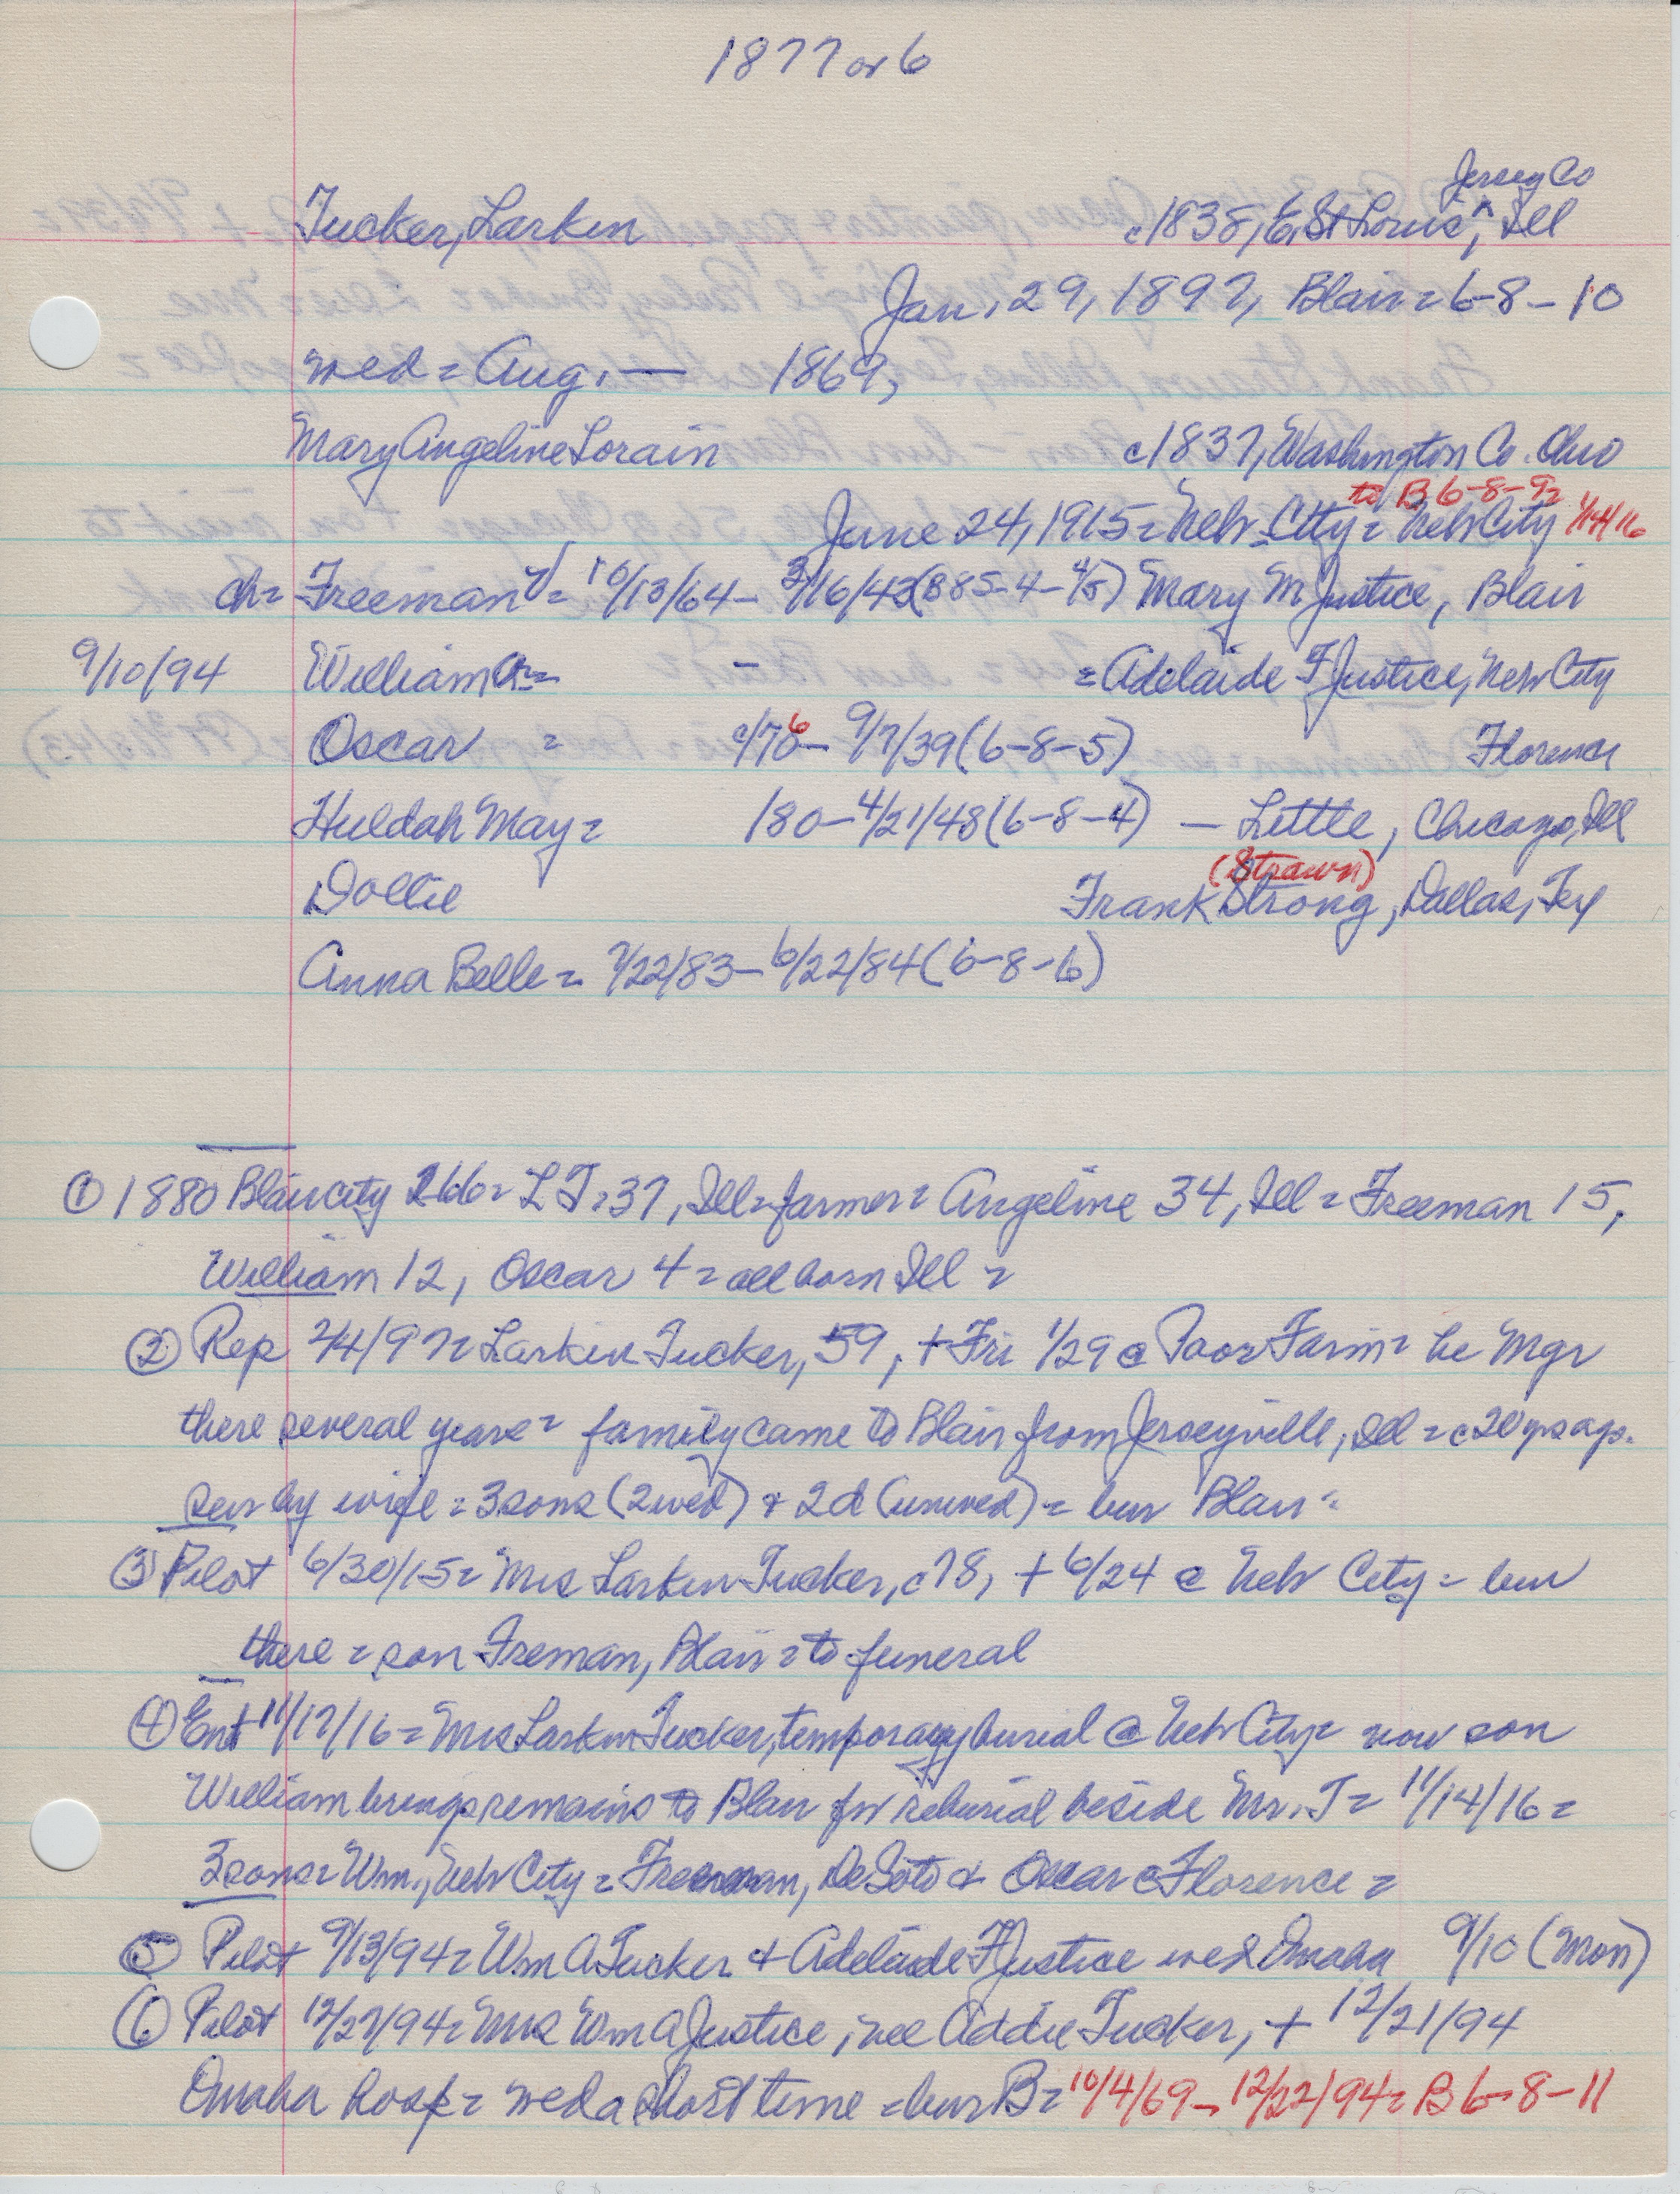 1877 or 6
Jersey Co
Tucker, Larken c1838, E. St Louis ^, Ill
Jan. 29, 1897, Blair = 6-8-10
wed = Aug. — 1869,
Mary Angeline Lorain c1837, Washington Co. Ohio
to B 6-8-9
June 24, 1915 = Neb City = Neb City 11/14/16
ch = Freeman = 10/13/64 - 3/16/43 (885-4-4/5) Mary M Justice, Blair
9/10/94 William A = - = Adelaide F Justice, Neb City
Oscar = c/76 - 9/7/39 (6-8-5) Florence
Huldah May = 180 - 4/21/48 (6-8-4) — Little, Chicago, Ill
(Strawn)
Dollie Frank Strong, Dallas, Tex
Anna Belle = 7/22/83 - 6/22/84 (6-8-6)
① 1880 Blair city 266 = L T = 37, Ill = farmer = Angeline 34, Ill = Freeman 15,
William 12, Oscar 4 = all born Ill =
② Rep 2/4/97 = Larkin Tucker, 59, + Fri 1/29 @ Poor Farm = he Mgr
there several years = family came to Blair from Jerseyville, Ill = c20 yrs ago.
sur by wife = 3 sons (2 wed) & 2 d (unwed) = bur Blair =
③ Pilot 6/30/15 = Mrs Larkin Tucker, c78, + 6/24 @ Neb City = bur
there = son Freman, Blair = to funeral
④ Ent 11/17/16 = Mrs Larkin Tucker, temporary burial @ Neb City = now son
William brings remains to Blair for reburial beside Mr. T = 11/14/16 =
3 sons = Wm., Neb City = Freeman, DeSoto & Oscar @ Florence =
⑤ Pilot 9/13/94 = Wm A Tucker & Adelaide F Justice wed Omaha 9/10 (Mon)
⑥ Pilot 12/27/94 = Mrs Wm A Justice, nee Addie Tucker, + 12/21/94
Omaha hosp = wed a short time = bur B = 10/4/69 - 12/22/94 = B 6-8-11